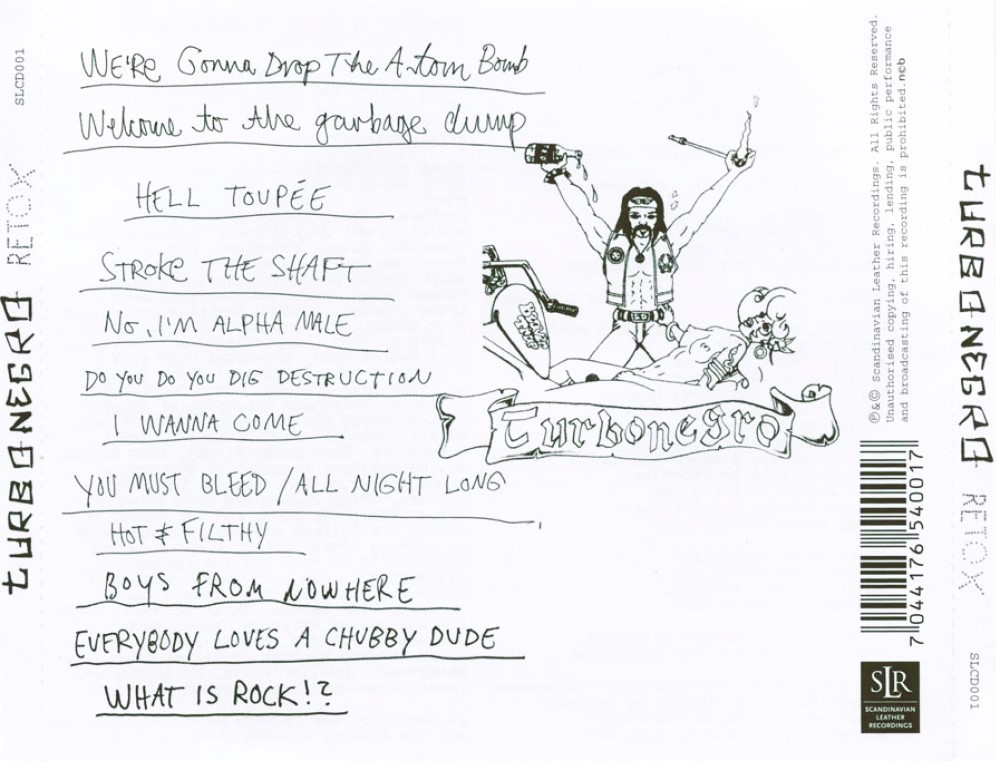 WE'Re Gonna Drop The A-tom Bomb
Welcome to the garbage dump
HELL TOUPÉE
STROKe THE SHAFT
No, I'M ALPHA MALE
DO YOU DO YOU DIG DESTRUCTION
I WANNA COME
YOU MUST BLEED / ALL NIGHT LONG
HOT & FILTHY
BOYS FROM NOWHERE
EVERYBODY LOVES A CHUBBY DUDE
WHAT IS ROCK!?
Turbonegro
SLCD001
RETOX
TURBONEGRO
℗&© Scandinavian Leather Recordings. All Rights Reserved.
Unauthorised copying, hiring, lending, public performance
and broadcasting of this recording is prohibited.ncb
7 044176 540017
SLR
SCANDINAVIAN
LEATHER
RECORDINGS
TURBONEGRO
RETOX
SLCD001